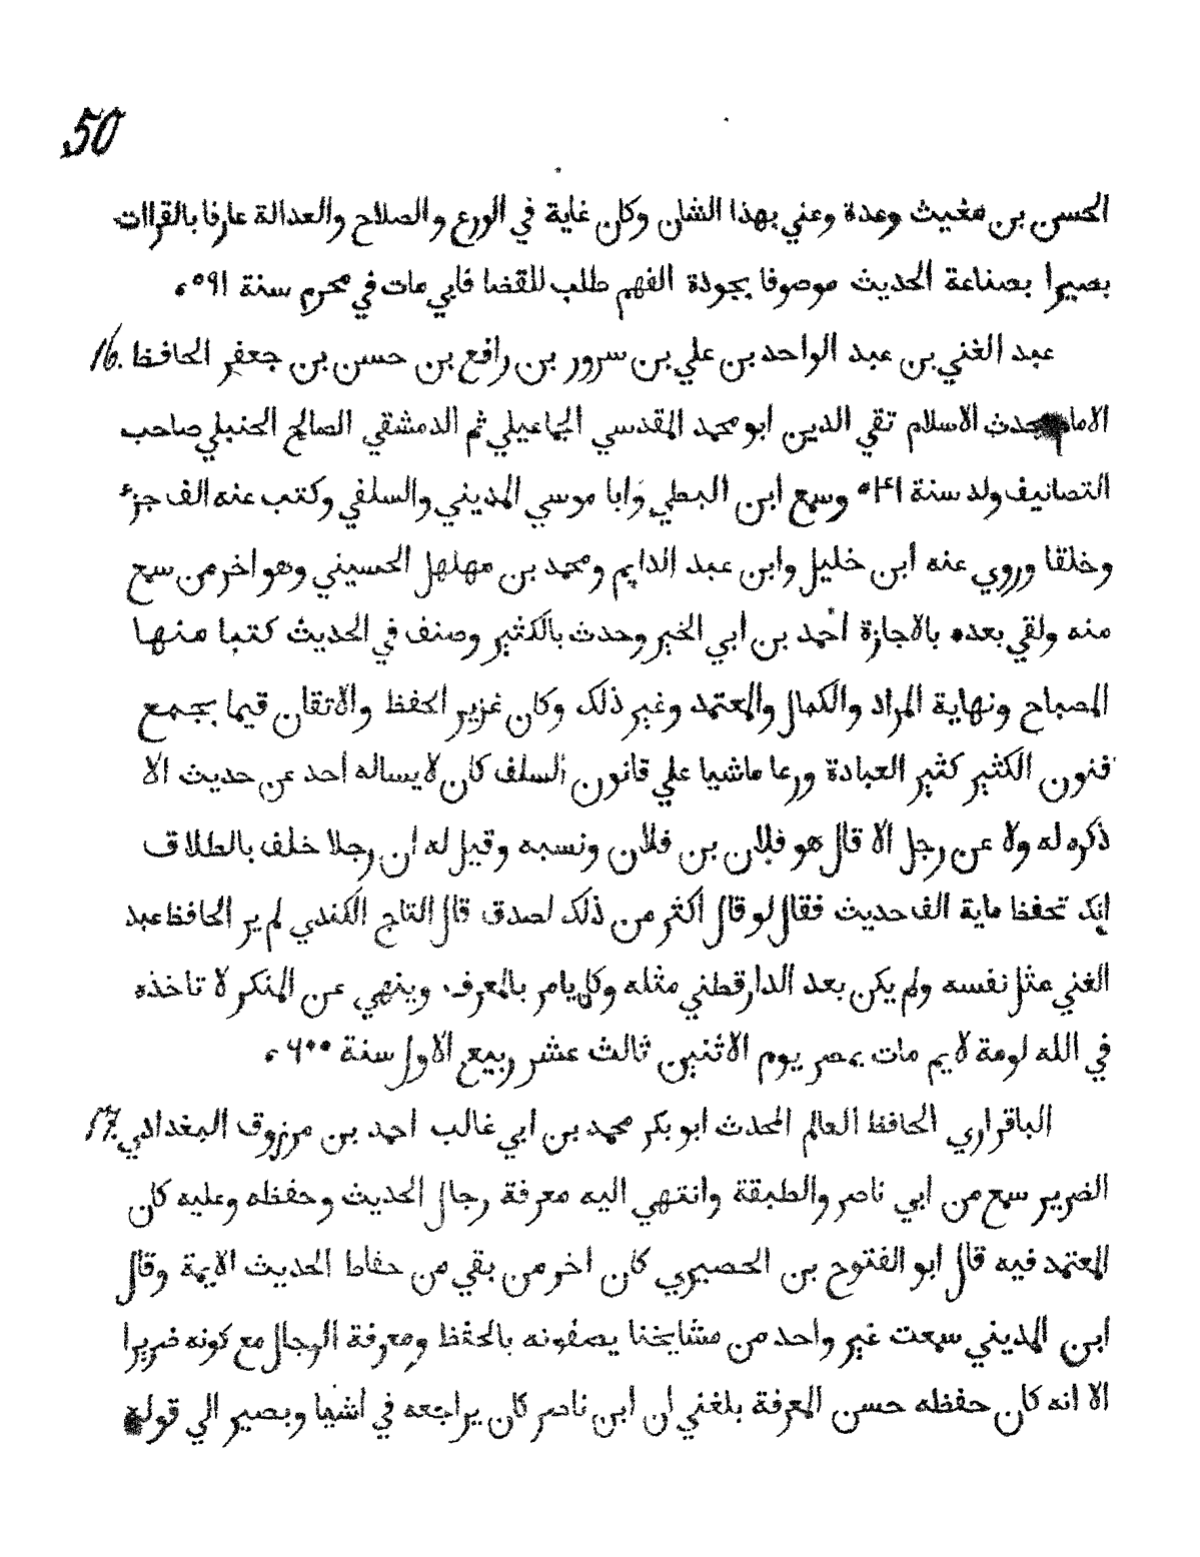 50
الحسن بن مغيث وعدة وعني بهذا الشان وكان غاية في الورع والصلاح والعدالة عارفا بالقراات
بصيرا بصناعة الحديث موصوفا بجودة الفهم طلب للقضا فابي مات في محرم سنة ٥٩١،
عبد الغني بن عبد الواحد بن علي بن سرور بن رافع بن حسن بن جعفر الحافظ 16.
الامام محدث الاسلام تقي الدين ابو محمد المقدسي الجماعيلي ثم الدمشقي الصالح الحنبلي صاحب
التصانيف ولد سنة ٥٤١ وسمع ابن البطي وابا موسي المديني والسلفي وكتب عنه الف جزء
وخلقا وروي عنه ابن خليل وابن عبد الدايم ومحمد بن مهلهل الحسيني وهو اخر من سمع
منه ولقي بعده بالاجازة أحمد بن ابي الخير وحدث بالكثير وصنف في الحديث كتبا منها
المصباح ونهاية المراد والكمال والمعتمد وغير ذلك وكان غزير الحفظ والاتقان قيما بجمع
فنون الكثير كثير العبادة ورعا ماشيا علي قانون السلف كان لا يساله أحد عن حديث الا
ذكره له ولا عن رجل الا قال هو فلان بن فلان ونسبه وقيل له ان رجلا خلف بالطلاق
انك تحفظ ماية الف حديث فقال لو قال أكثر من ذلك لصدق قال التاج الكندي لم ير الحافظ عبد
الغني مثل نفسه ولم يكن بعد الدارقطني مثله وكان يامر بالمعرف وينهي عن المنكر لا تاخذه
في الله لومة لايم مات بمصر يوم الاثنين ثالث عشر ربيع الاول سنة ٦٠٠،
الباقراري الحافظ العالم المحدث ابو بكر محمد بن ابي غالب احمد بن مرزوق البغدادي 17.
الضرير سمع من ابي ناصر والطبقة وانتهي اليه معرفة رجال الحديث وحفظه وعليه كان
المعتمد فيه قال ابو الفتوح بن الحصيري كان اخر من بقي من حفاظ الحديث الايمة وقال
ابن المديني سمعت غير واحد من مشايخنا يصفونه بالحفظ ومعرفة الرجال مع كونه ضريرا
الا انه كان حفظه حسن المعرفة بلغني ان ابن ناصر كان يراجعه في أشيا وبصير الي قوله